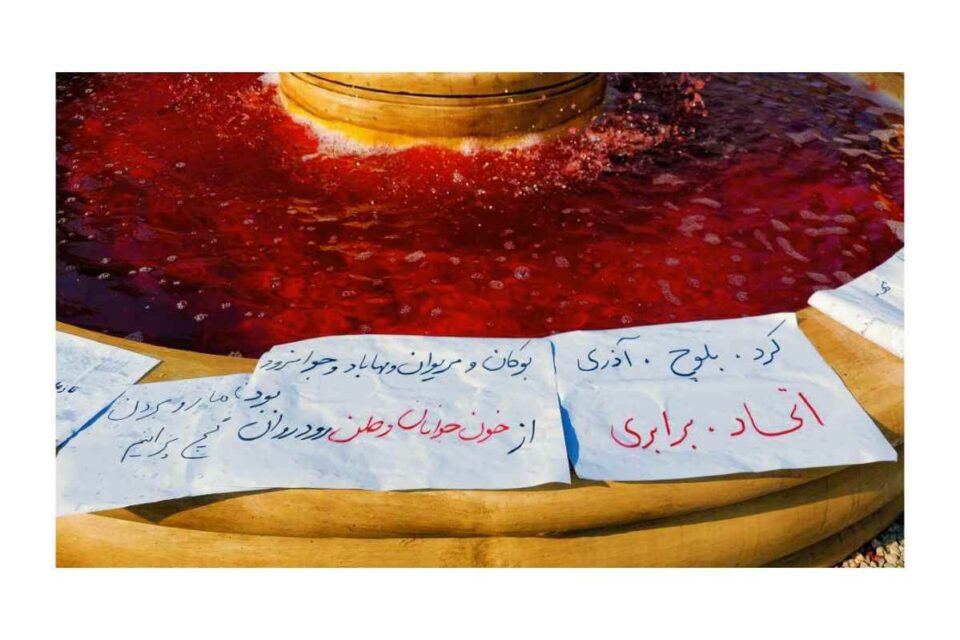 کرد . بلوچ . آذری
اتحاد . برابری
بوکان و مریوان و مهاباد و جوانرود
از خون جوانان وطن رود روان
بود تا ما رو بردن
تیغ